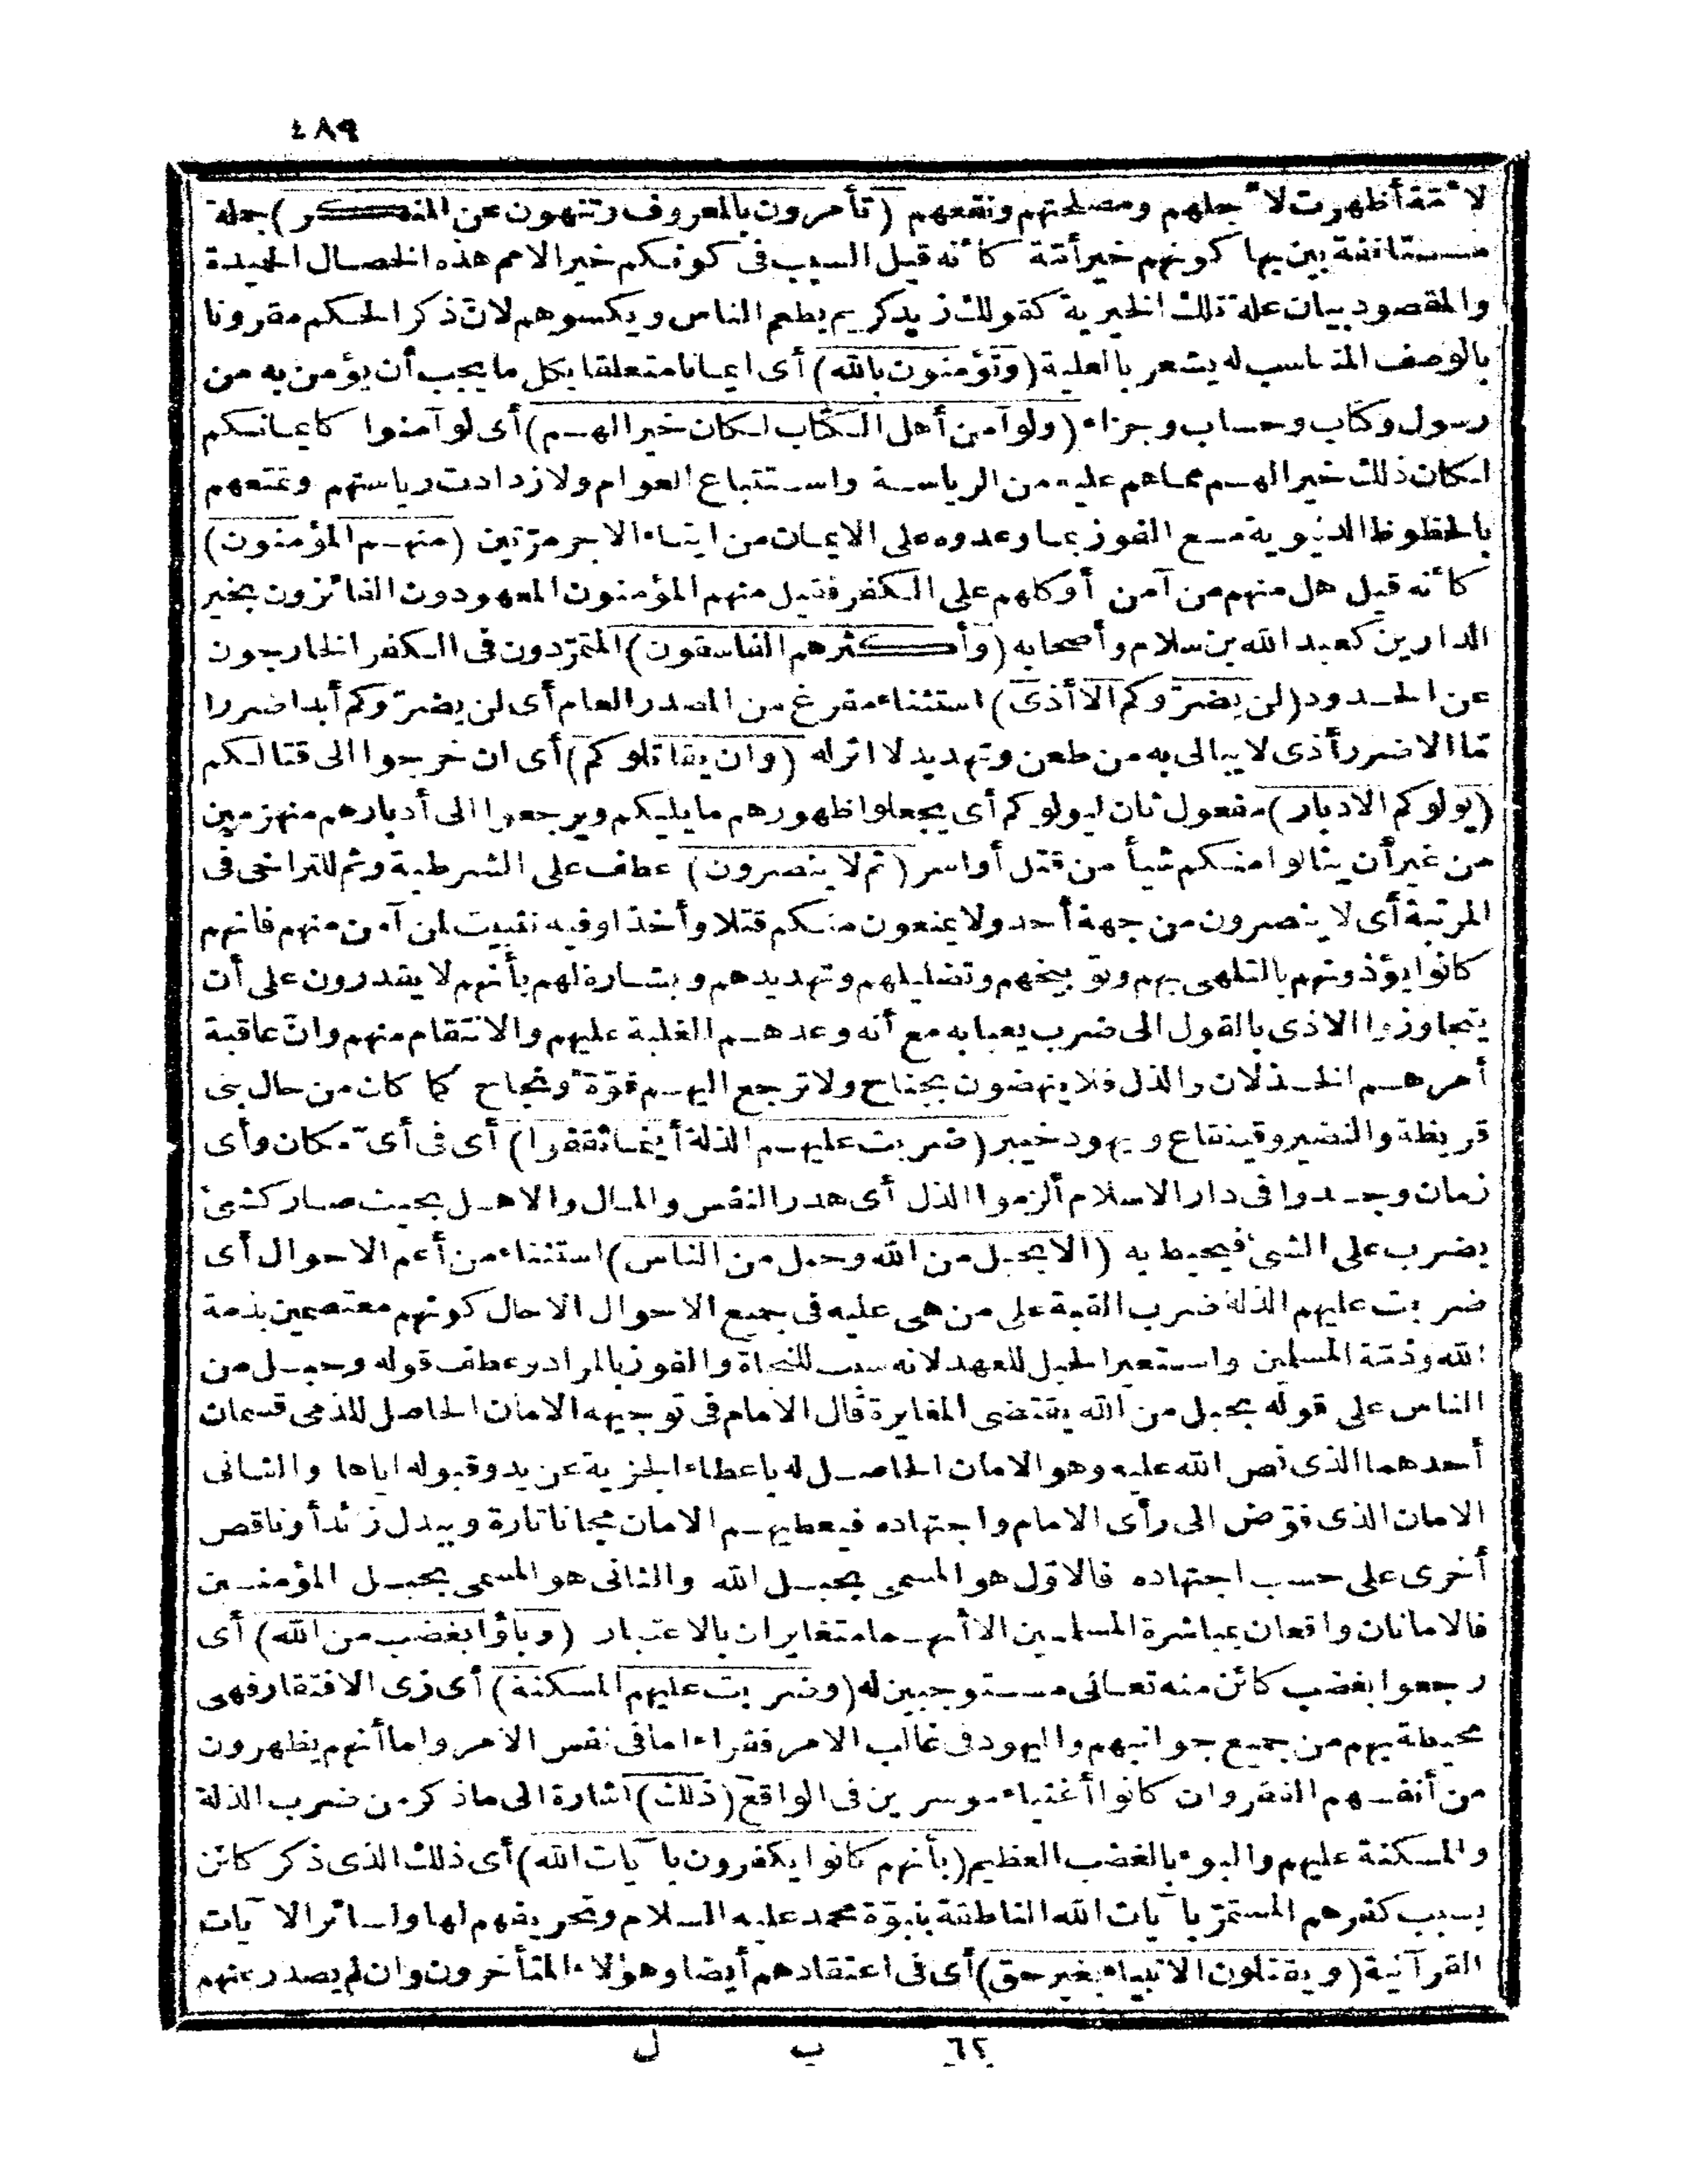 ٤٨٩
لامّة أظهرت لاجلهم ومصلحتهم ونفعهم (تأمرون بالمعروف وتنهون عن المنكر) جملة
مستأنفة بين بها كونهم خير أمّة كأنه قيل السبب فى كونكم خير الامم هذه الخصال الحميدة
والمقصود بيان علة تلك الخيرية كقولك زيد كريم يطعم الناس ويكسوهم لانّ ذكر الحكم مقرونا
بالوصف المناسب له يشعر بالعلية (وتؤمنون بالله) أى ايمانا متعلقا بكل ما يجب أن يؤمن به من
رسول وكتاب وحساب وجزاء (ولو آمن أهل الكتاب لكان خيرا لهم) أى لو آمنوا كايمانكم
لكان ذلك خيرا لهم مما هم عليه من الرياسة واستتباع العوام ولازدادت رياستهم وتمتعهم
بالحظوظ الدنيوية مع الفوز بما وعدوه على الايمان من ايتاء الاجر مرّتين (منهم المؤمنون)
كأنه قيل هل منهم من آمن أوكلهم على الكفر فقيل منهم المؤمنون المعهودون الفائزون بخير
الدارين كعبد الله بن سلام وأصحابه (وأكثرهم الفاسقون) المتمرّدون فى الكفر الخارجون
عن الحدود (لن يضرّوكم الا أذى) استثناء مفرغ من المصدر العام أى لن يضرّوكم أبدا ضررا
مّا الا ضرر أذى لا يبالى به من طعن وتهديد لا اثر له (وان يقاتلوكم) أى ان خرجوا الى قتالكم
(يولوكم الادبار) مفعول ثان ليولوكم أى يجعلوا ظهورهم ما يليكم ويرجعوا الى أدبارهم منهزمين
من غير أن ينالوا منكم شيأ من قتل أو اسر (ثم لا ينصرون) عطف على الشرطية وثم للتراخى فى
المرتبة أى لا ينصرون من جهة أحد ولا يمنعون منكم قتلا وأخذا وفيه تثبيت لمن آمن منهم فانهم
كانوا يؤذونهم بالتلهى بهم وتوبيخهم وتضليلهم وتهديدهم وبشارة لهم بأنهم لا يقدرون على أن
يتجاوزوا الاذى بالقول الى ضرب يعبا به مع أنه وعدهم الغلبة عليهم والانتقام منهم وانّ عاقبة
أمرهم الخذلان والذل فلا ينهضون بجناح ولا ترجع اليهم قوّة ونجاح كما كان من حال بنى
قريظة والنضير وقينقاع ويهود خيبر (ضربت عليهم الذلة أينما ثقفوا) أى فى أىّ مكان وأى
زمان وجدوا فى دار الاسلام ألزموا الذل أى هدر النفس والمال والاهل بحيث صار كشئ
يضرب على الشئ فيحيط به (الا بحبل من الله وحبل من الناس) استثناء من أعم الاحوال أى
ضربت عليهم الذلة ضرب القبة على من هى عليه فى جميع الاحوال الا حال كونهم معتصمين بذمة
الله وذمّة المسلمين واستعير الحبل للعهد لانه سبب للنجاة والفوز بالمراد وعطف قوله وحبل من
الناس على قوله بحبل من الله يقتضى المغايرة قال الامام فى توجيهه الامان الحاصل للذمى قسمان
أحدهما الذى نص الله عليه وهو الامان الحاصل له باعطاء الجزية عن يد وقبوله اياها والثانى
الامان الذى فوّض الى رأى الامام واجتهاده فيعطيهم الامان مجانا تارة وببدل زائد أو ناقص
أخرى على حسب اجتهاده فالاوّل هو المسمى بحبل الله والثانى هو المسمى بحبل المؤمنين
فالامانان واقعان بمباشرة المسلمين الا أنهما متغايران بالاعتبار (وباؤا بغضب من الله) أى
رجعوا بغضب كائن منه تعالى مستوجبين له (وضربت عليهم المسكنة) أى زى الافتقار فهى
محيطة بهم من جميع جوانبهم واليهود فى غالب الامر فقراء اما فى نفس الامر واما أنهم يظهرون
من أنفسهم الفقر وان كانوا أغنياء موسرين فى الواقع (ذلك) اشارة الى ما ذكر من ضرب الذلة
والمسكنة عليهم والبوء بالغضب العظيم (بأنهم كانوا يكفرون بآيات الله) أى ذلك الذى ذكر كائن
بسبب كفرهم المستمرّ بآيات الله الناطقة بنبوّة محمد عليه السلام وتحريفهم لها ولسائر الآيات
القرآنية (ويقتلون الانبياء بغير حق) أى فى اعتقادهم أيضا وهؤلاء المتأخرون وان لم يصدر عنهم
٦٢ ب ل